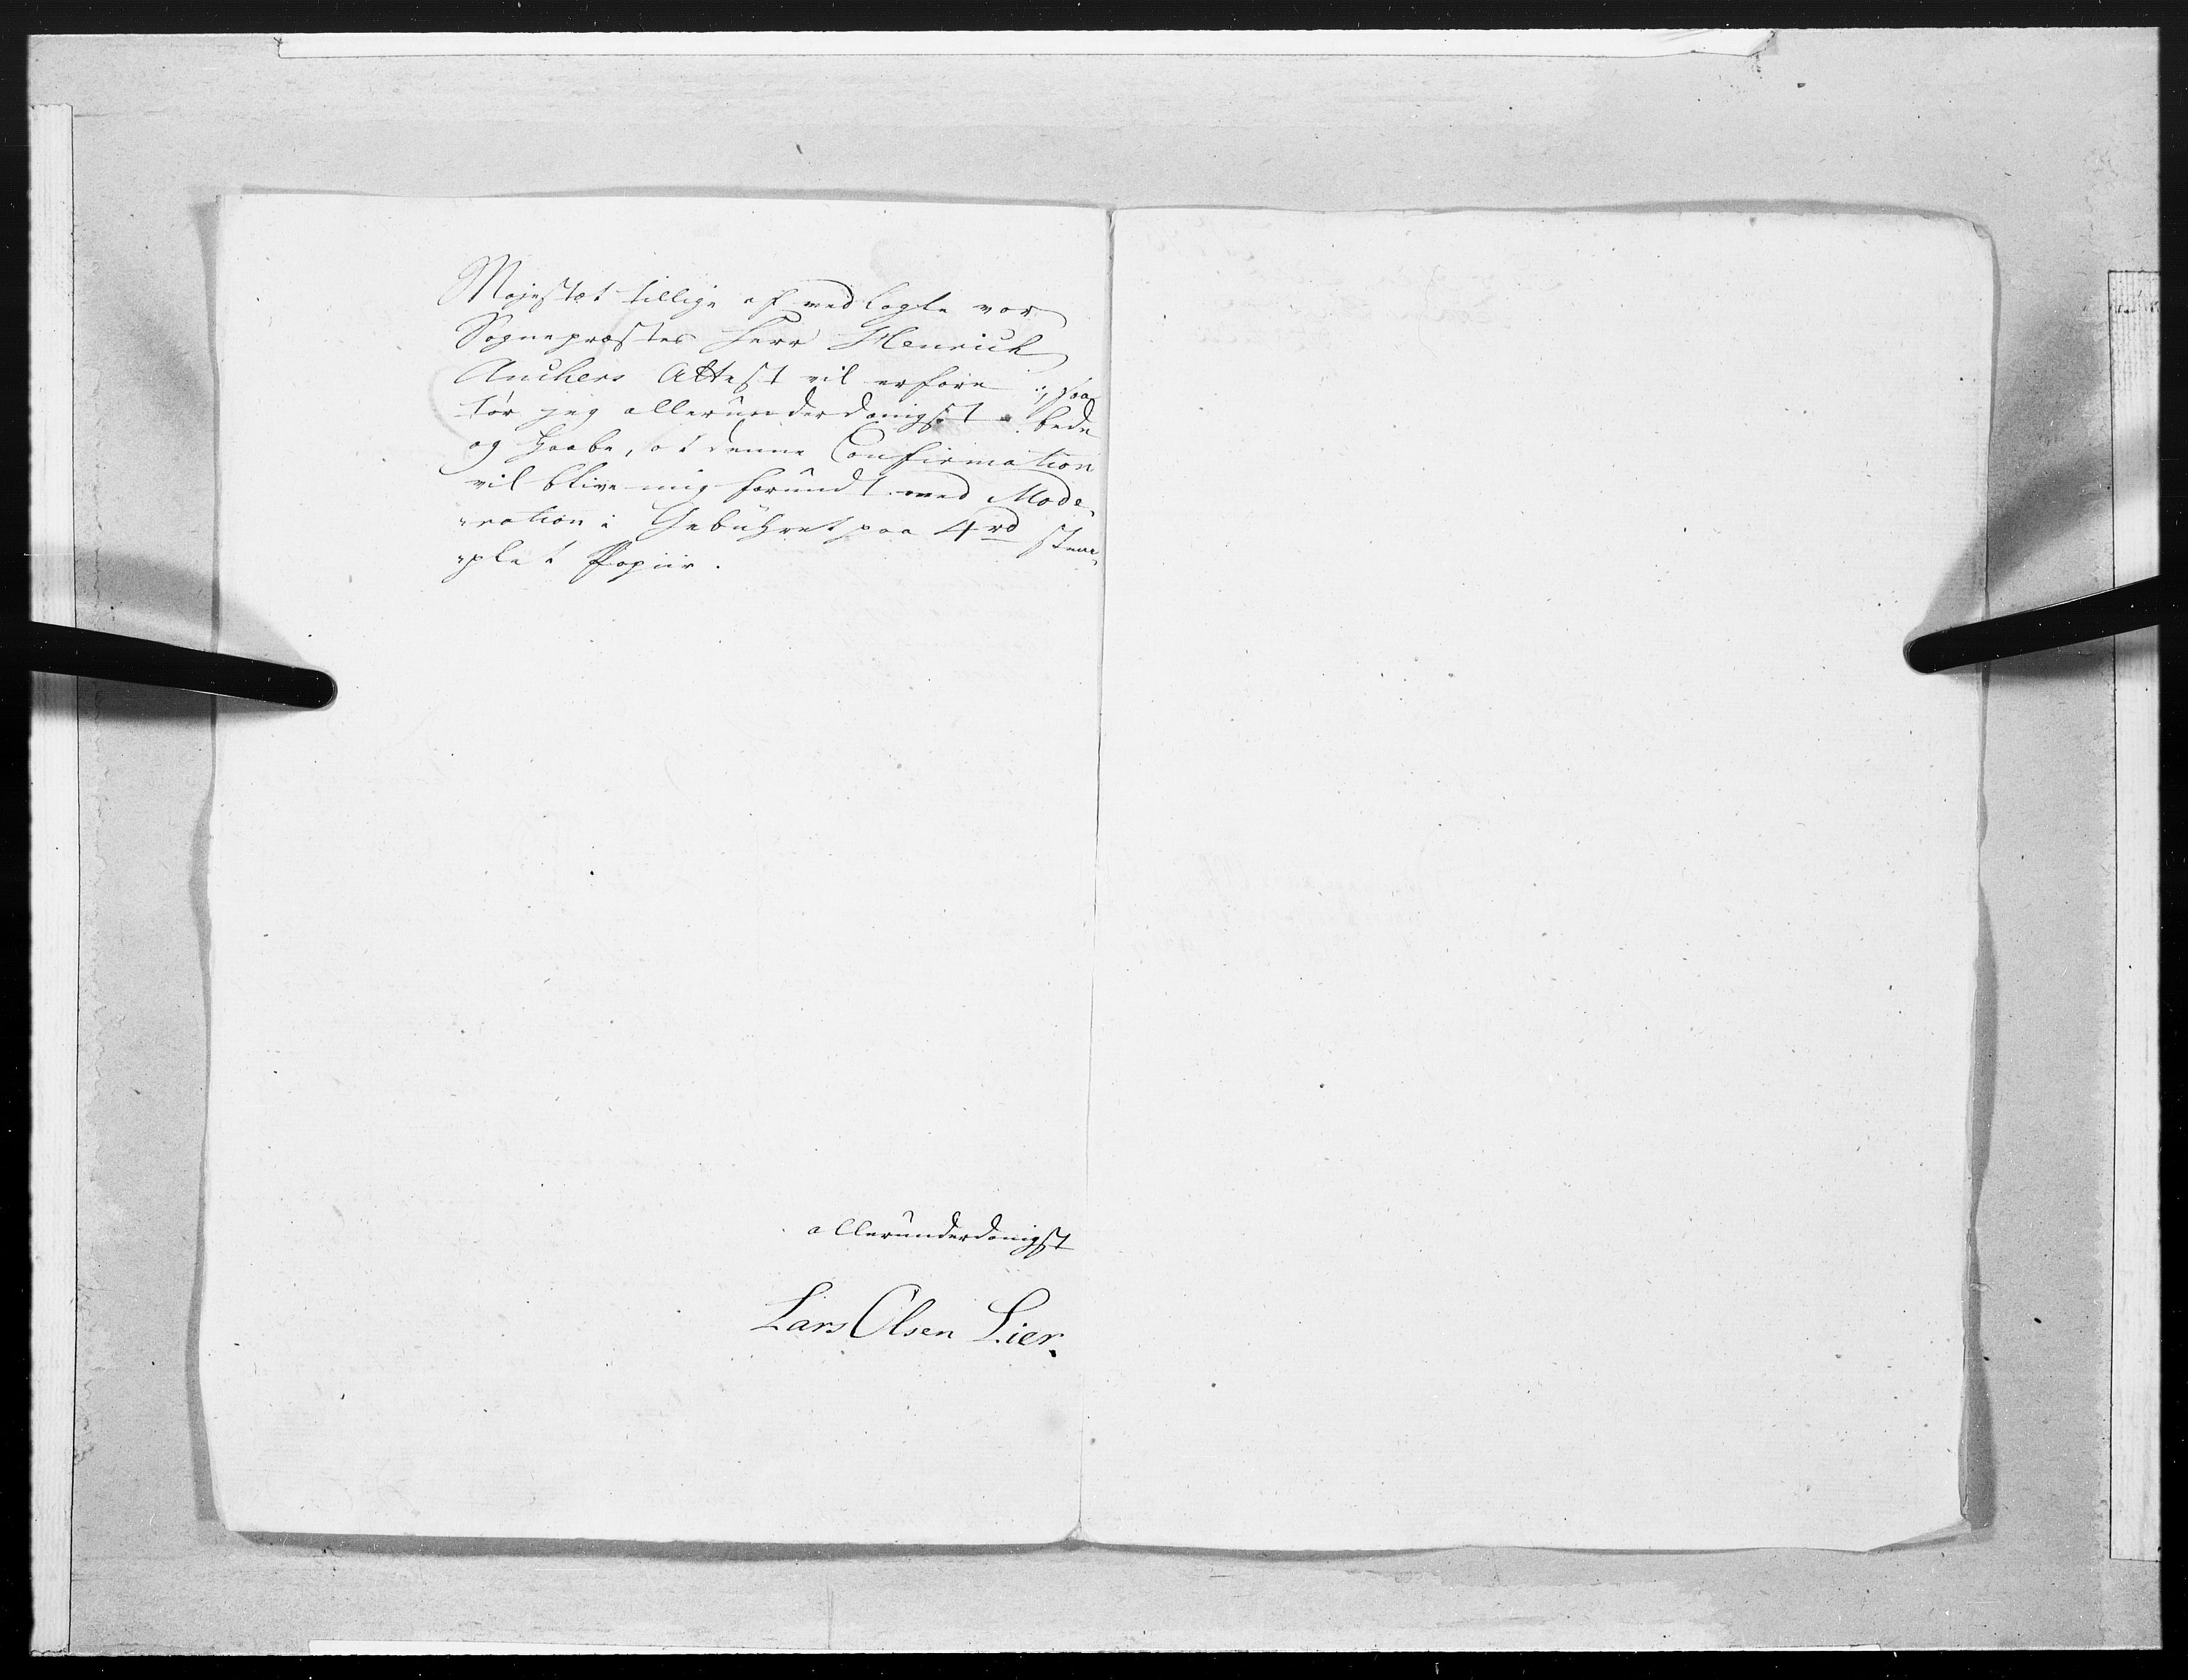 Majestæt tillige af vedlagte vor
Sognepræstes Herr Henrich
Anchers Attest vil erfare :/ saa
tør jeg allerunderdanigst bede
og haabe, at denne Confirmation
vil blive mig forundt med Mode-
-ration i Gebuhret paa 4 rd stem-
-plet Papiir.
allerunderdanigst
Lars Olsen Lier.